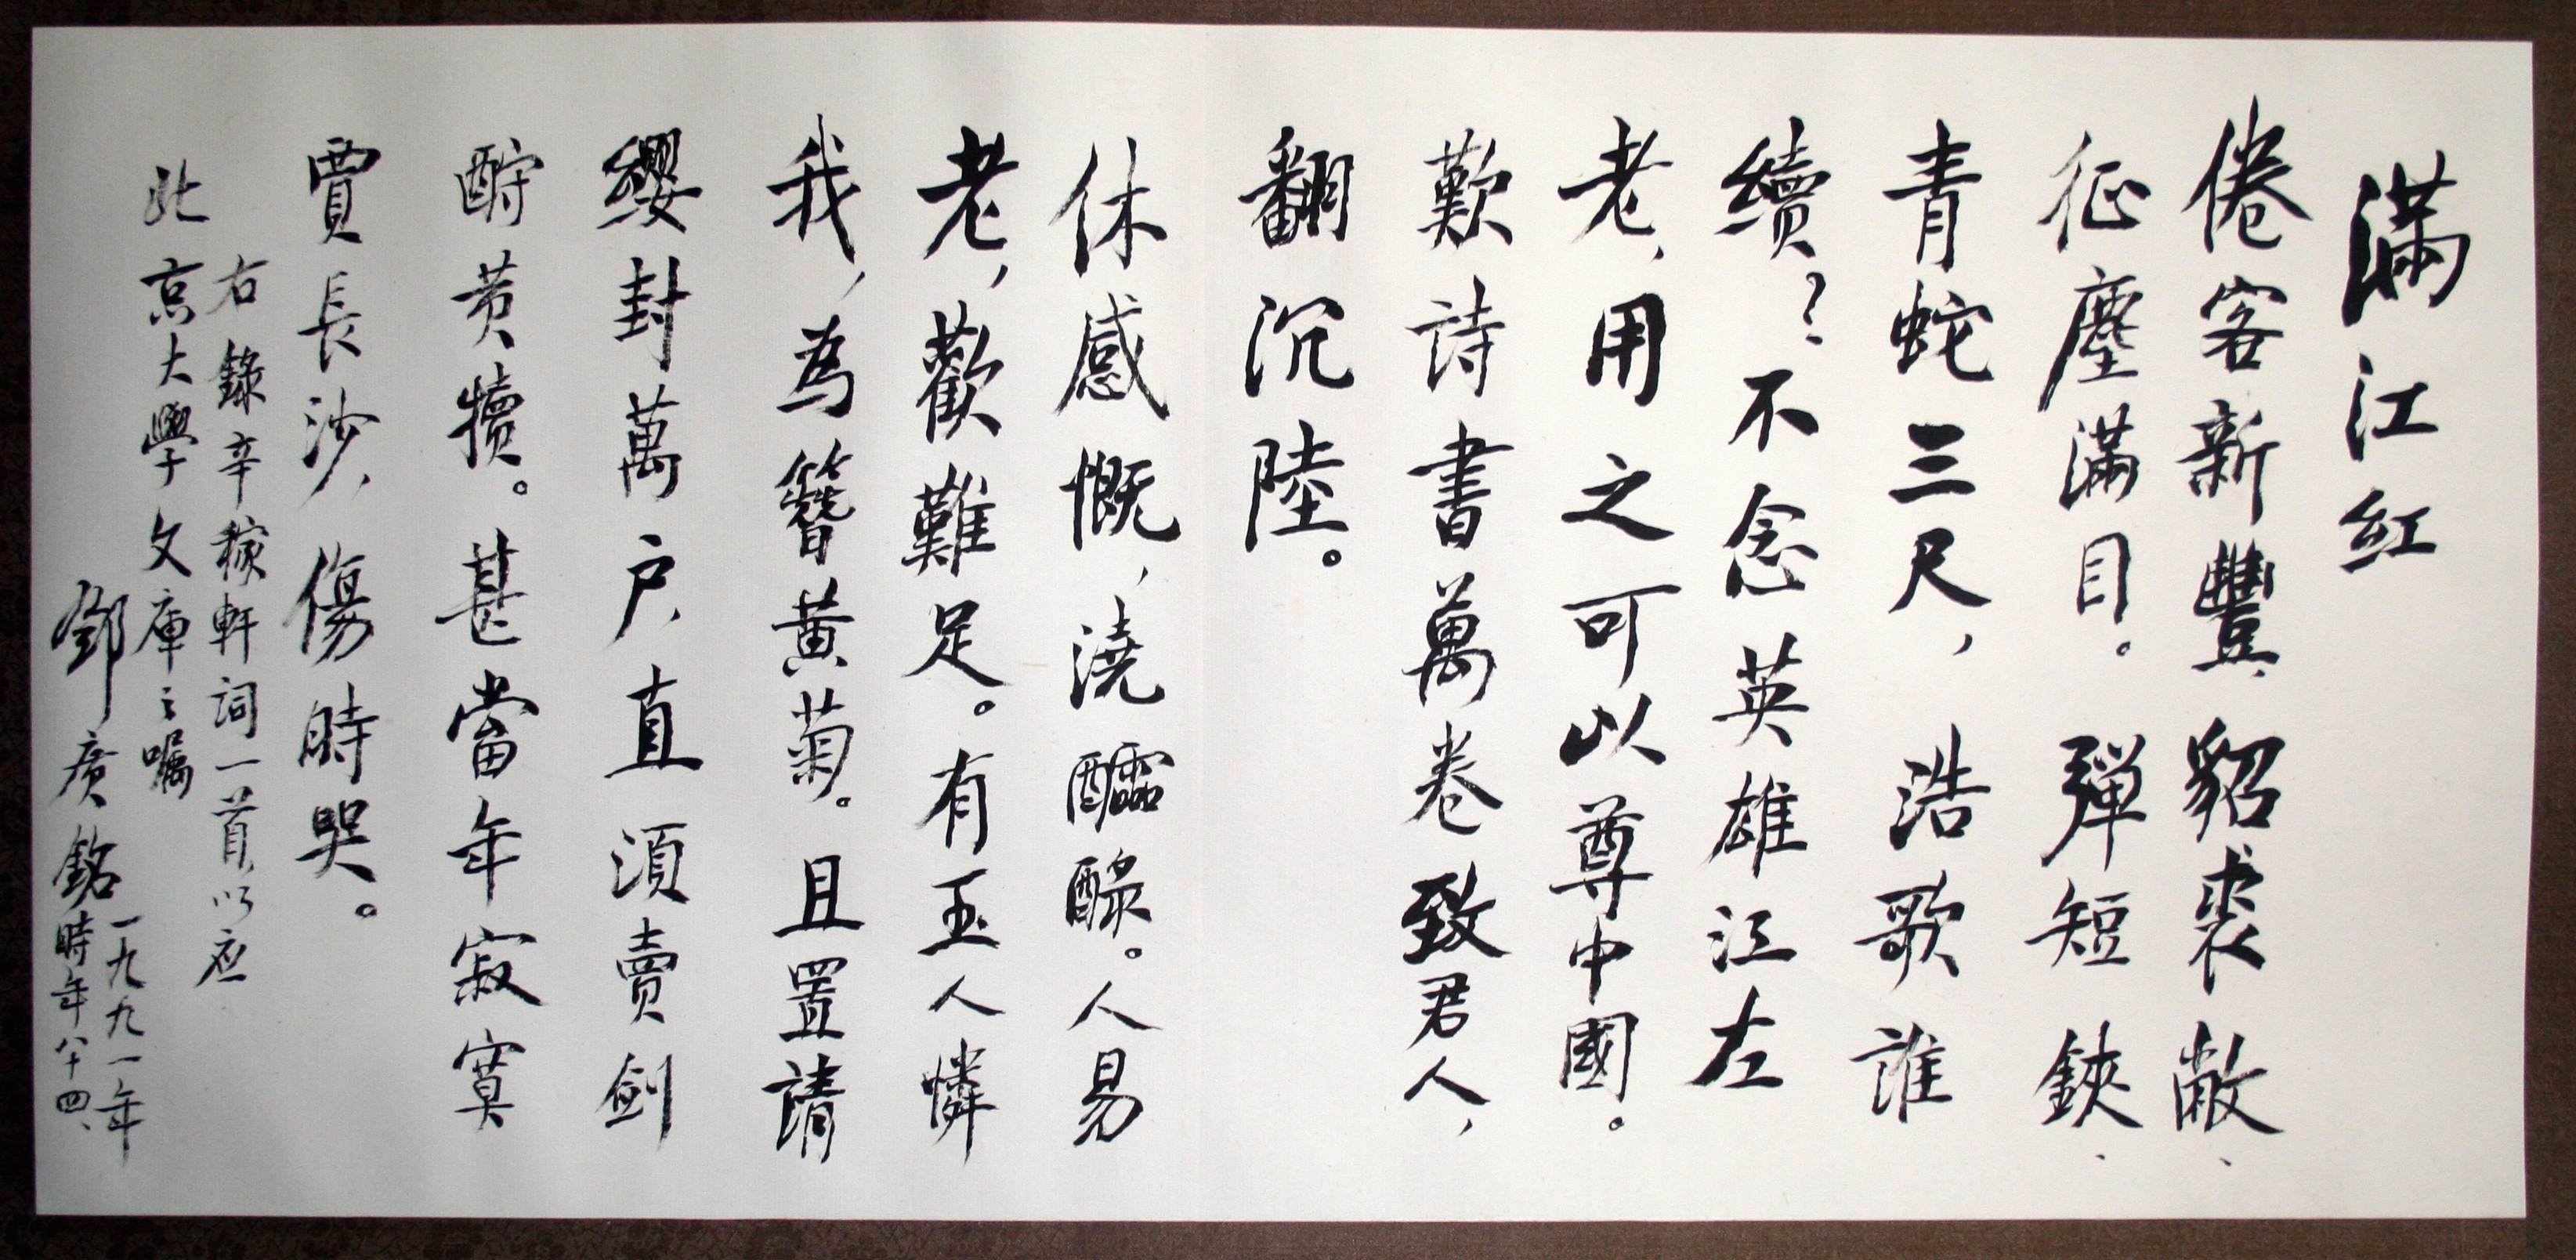 滿江紅
倦客新豐，貂裘敝、
征塵滿目。彈短鋏、
青蛇三尺，浩歌誰
續？不念英雄江左
老，用之可以尊中國。
歎詩書萬卷致君人，
翻沉陸。
休感慨，澆醽醁。人易
老，歡難足。有玉人憐
我，為簪黃菊。且置請
纓封萬户，直須賣劍
酧黄犢。甚當年寂寞
賈長沙，傷時哭。
右錄辛稼軒詞一首，以应
北京大學文庫之囑
鄧廣銘
一九九一年
時年八十四、